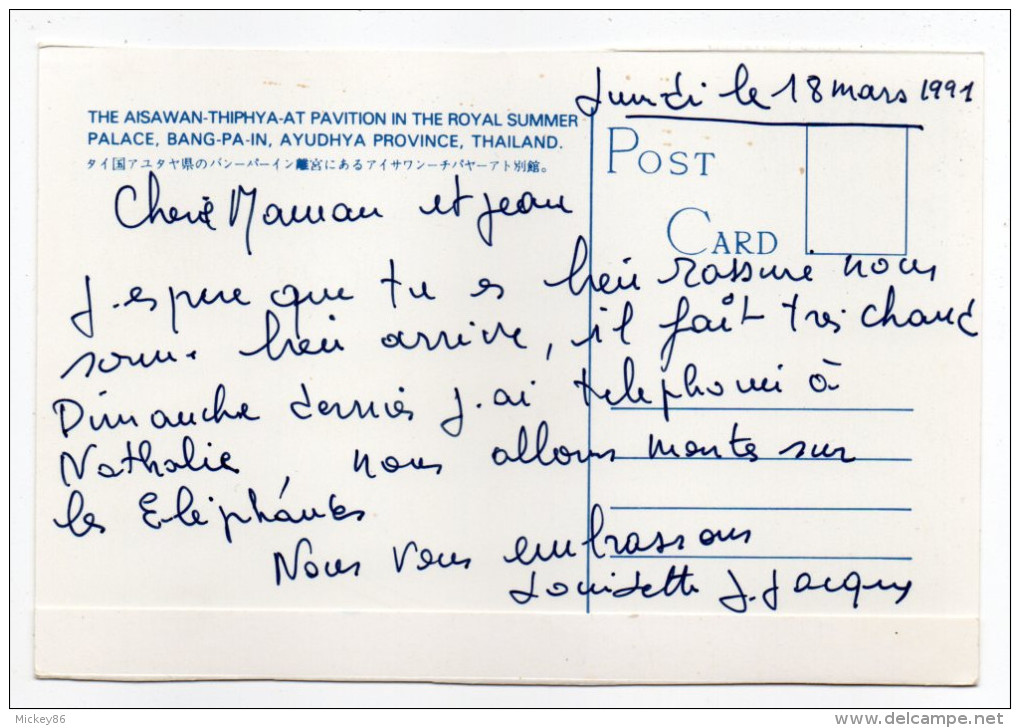 lundi le 18 mars 1991
THE AISAWAN-THIPHYA-AT PAVITION IN THE ROYAL SUMMER
PALACE, BANG-PA-IN, AYUDHYA PROVINCE, THAILAND.
タイ国アユタヤ県のバンーパーイン離宮にあるアイサワンーチパヤーアト別館。
POST
CARD
Cheré Maman et jean
J.espere que tu es bien rassure nous
somme bien arrive, il fait tres chaud
Dimanche dernier j.ai telephoné à
Nathalie, nous allons monter sur
les Eléphántes
Nous vous embrassons
Louisette J. Jacques
Mickey86
delcampe.net